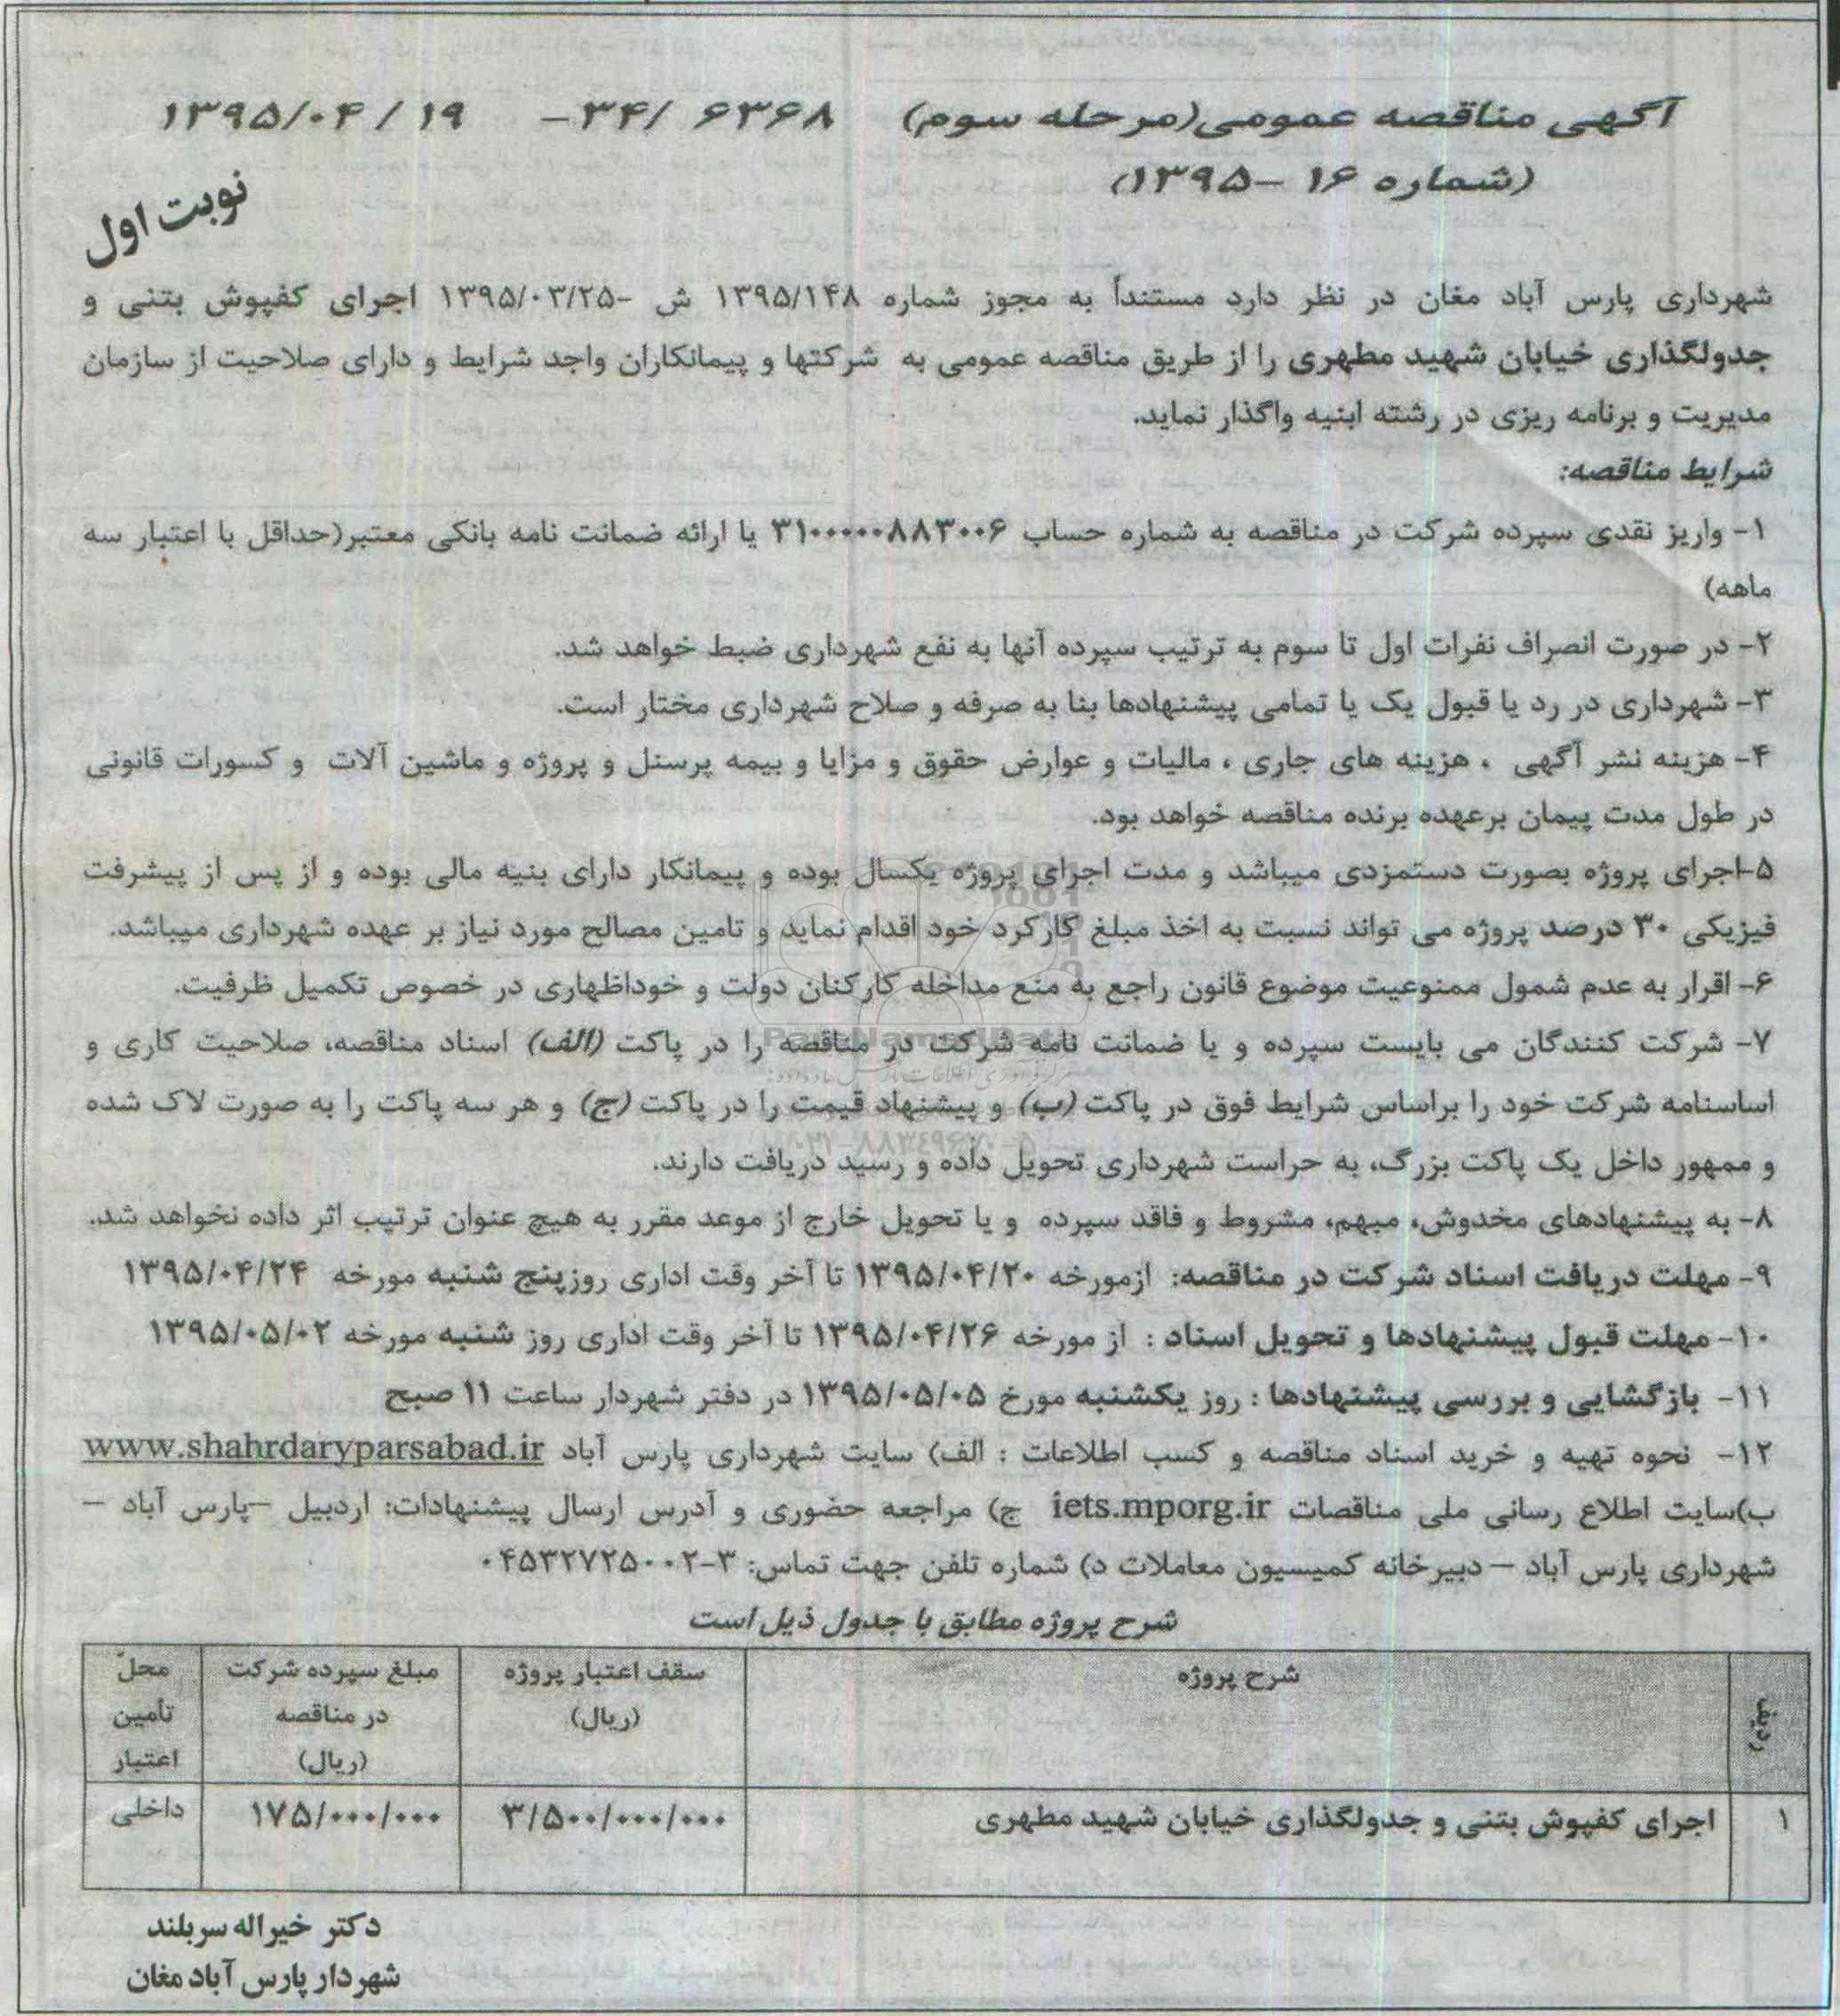 آگهی مناقصه عمومی(مرحله سوم) ۶۳۶۸ /۳۴- ۱۳۹۵/۰۴/۱۹
(شماره ۱۶ -۱۳۹۵)
نوبت اول
شهرداری پارس آباد مغان در نظر دارد مستنداً به مجوز شماره ۱۳۹۵/۱۴۸ ش -۱۳۹۵/۰۳/۲۵ اجرای کفپوش بتنی و
جدولگذاری خیابان شهید مطهری را از طریق مناقصه عمومی به شرکتها و پیمانکاران واجد شرایط و دارای صلاحیت از سازمان
مدیریت و برنامه ریزی در رشته ابنیه واگذار نماید.
شرایط مناقصه:
۱- واریز نقدی سپرده شرکت در مناقصه به شماره حساب ۳۱۰۰۰۰۰۰۸۸۳۰۰۶ یا ارائه ضمانت نامه بانکی معتبر(حداقل با اعتبار سه
ماهه)
۲- در صورت انصراف نفرات اول تا سوم به ترتیب سپرده آنها به نفع شهرداری ضبط خواهد شد.
۳- شهرداری در رد یا قبول یک یا تمامی پیشنهادها بنا به صرفه و صلاح شهرداری مختار است.
۴- هزینه نشر آگهی ، هزینه های جاری ، مالیات و عوارض حقوق و مزایا و بیمه پرسنل و پروژه و ماشین آلات و کسورات قانونی
در طول مدت پیمان برعهده برنده مناقصه خواهد بود.
۵-اجرای پروژه بصورت دستمزدی میباشد و مدت اجرای پروژه یکسال بوده و پیمانکار دارای بنیه مالی بوده و از پس از پیشرفت
فیزیکی ۳۰ درصد پروژه می تواند نسبت به اخذ مبلغ کارکرد خود اقدام نماید و تامین مصالح مورد نیاز بر عهده شهرداری میباشد.
۶- اقرار به عدم شمول ممنوعیت موضوع قانون راجع به منع مداخله کارکنان دولت و خوداظهاری در خصوص تکمیل ظرفیت.
۷- شرکت کنندگان می بایست سپرده و یا ضمانت نامه شرکت در مناقصه را در پاکت (الف) اسناد مناقصه، صلاحیت کاری و
اساسنامه شرکت خود را براساس شرایط فوق در پاکت (ب) و پیشنهاد قیمت را در پاکت (ج) و هر سه پاکت را به صورت لاک شده
و ممهور داخل یک پاکت بزرگ، به حراست شهرداری تحویل داده و رسید دریافت دارند.
۸- به پیشنهادهای مخدوش، مبهم، مشروط و فاقد سپرده و یا تحویل خارج از موعد مقرر به هیچ عنوان ترتیب اثر داده نخواهد شد.
۹- مهلت دریافت اسناد شرکت در مناقصه: ازمورخه ۱۳۹۵/۰۴/۲۰ تا آخر وقت اداری روزپنج شنبه مورخه ۱۳۹۵/۰۴/۲۴
۱۰- مهلت قبول پیشنهادها و تحویل اسناد : از مورخه ۱۳۹۵/۰۴/۲۶ تا آخر وقت اداری روز شنبه مورخه ۱۳۹۵/۰۵/۰۲
۱۱- بازگشایی و بررسی پیشنهادها : روز یکشنبه مورخ ۱۳۹۵/۰۵/۰۵ در دفتر شهردار ساعت ۱۱ صبح
۱۲- نحوه تهیه و خرید اسناد مناقصه و کسب اطلاعات : الف) سایت شهرداری پارس آباد www.shahrdaryparsabad.ir
ب)سایت اطلاع رسانی ملی مناقصات iets.mporg.ir ج) مراجعه حضوری و آدرس ارسال پیشنهادات: اردبیل –پارس آباد –
شهرداری پارس آباد – دبیرخانه کمیسیون معاملات د) شماره تلفن جهت تماس: ۳-۰۴۵۳۲۷۲۵۰۰۲
شرح پروژه مطابق با جدول ذیل است
ردیف شرح پروژه سقف اعتبار پروژه (ریال) مبلغ سپرده شرکت در مناقصه (ریال) محلّ تأمین اعتبار
۱ اجرای کفپوش بتنی و جدولگذاری خیابان شهید مطهری ۳/۵۰۰/۰۰۰/۰۰۰ ۱۷۵/۰۰۰/۰۰۰ داخلی
دکتر خیراله سربلند
شهردار پارس آباد مغان